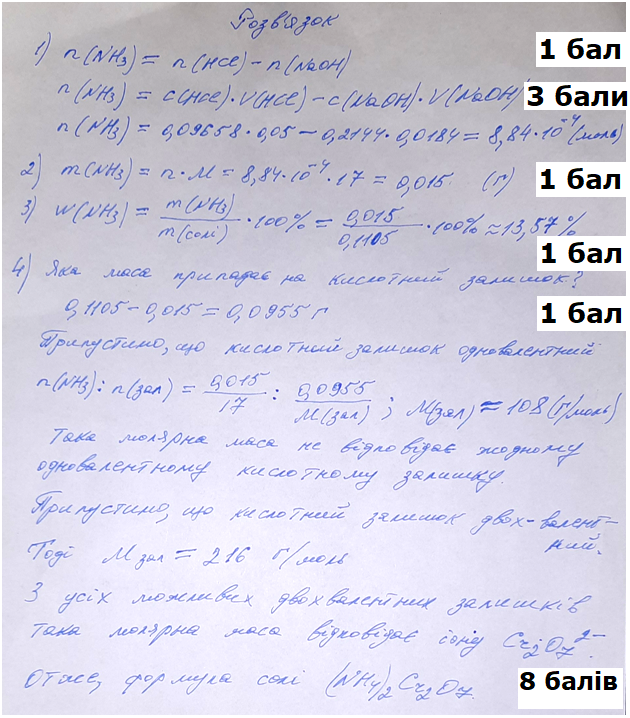 Розв'язок
1) n(NH3) = n(HCl) - n(NaOH) 1 бал
n(NH3) = c(HCl)·V(HCl) - c(NaOH)·V(NaOH) 3 бали
n(NH3) = 0,09658·0,05 - 0,2144·0,0184 = 8,84·10^-4 (моль)
2) m(NH3) = n·M = 8,84·10^-4·17 = 0,015 (г) 1 бал
3) W(NH3) = m(NH3)/m(солі) ·100% = 0,015/0,1105 ·100% ≈ 13,57%
1 бал
4) Яка маса припадає на кислотний залишок?
0,1105 - 0,015 = 0,0955 г 1 бал
Припустимо, що кислотний залишок одновалентний
n(NH3) : n(зал) = 0,015/17 : 0,0955/M(зал) ; M(зал) = 108 (г/моль)
Така молярна маса не відповідає жодному
одновалентному кислотному залишку.
Припустимо, що кислотний залишок двох-валент-
ний.
Тоді M зал = 216 г/моль
З усіх можливих двохвалентних залишків
така молярна маса відповідає іону Cr2O7^2-.
Отже, формула солі (NH4)2Cr2O7. 8 балів